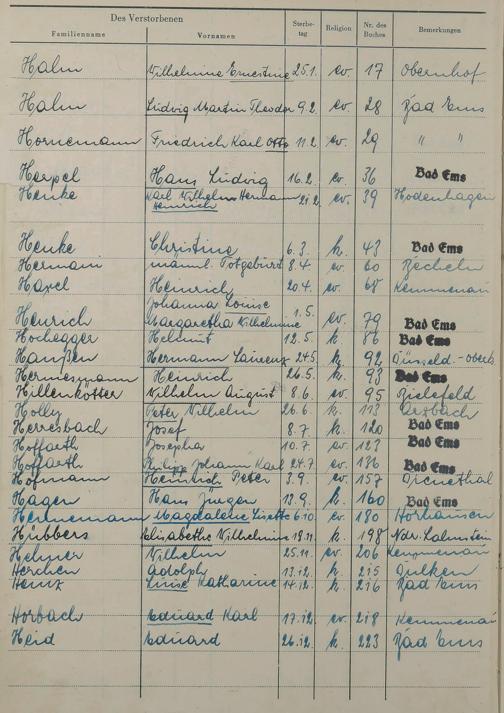 Des Verstorbenen
Familienname Vornamen Sterbe-tag Religion Nr. des Buches Bemerkungen
Halm Wilhelmine Ernestine 25.1. ev. 17 Obernhof
Halm Ludwig Martin Theodor 9.2. ev. 28 Bad Ems
Hornemann Friedrich Karl Otto 11.2. ev. 29 " "
Haepel Hans Ludwig 16.2. ev. 36 Bad Ems
Henke Karl Wilhelm Hermann Heinrich 21.2. ev. 39 Hodenhagen
Henke Christine 6.3. k. 43 Bad Ems
Hermann männl. Totgeburt 8.4. ev. 60 Becheln
Hapel Heinrich 20.4. ev. 68 Kemmenau
Henrich Johanna Louise Margaretha Wilhelmine 1.5. ev. 79 Bad Ems
Hochegger Helmut 12.5. k. 86 Bad Ems
Hanßen Hermann Laurenz 24.5. k. 92 Düsseld.-oberk.
Heinrich 26.5. k. 93 Bad Ems
Hillenkötter Wilhelm August 8.6. ev. 95 Bielefeld
Holly Peter Wilhelm 26.6. k. 113
Herresbach Josef 8.7. k. 120 Bad Ems
Hoffarth Josepha 10.7. ev. 123 Bad Ems
Hoffarth Philipp Johann Karl 24.7 ev. 136 Bad Ems
Hofmann Heinrich Peter 3.9. ev. 157
Hagen Hans Jürgen 13.9. k. 160 Bad Ems
Magdalene Lisette 6.10. ev. 180 Horhausen
Hübbers Elisabethe Wilhelmine 18.11. k. 198 Ndr. Lahnstein
Hehner Wilhelm 25.11. ev. 206 Kemmenau
Herchen Adolph 13.12. k. 215 Dülken
Heinz Luise Katharine 14.12. k. 216 Bad Ems
Horbach Eduard Karl 17.12. ev. 218 Kemmenau
Heid Eduard 26.12. k. 223 Bad Ems